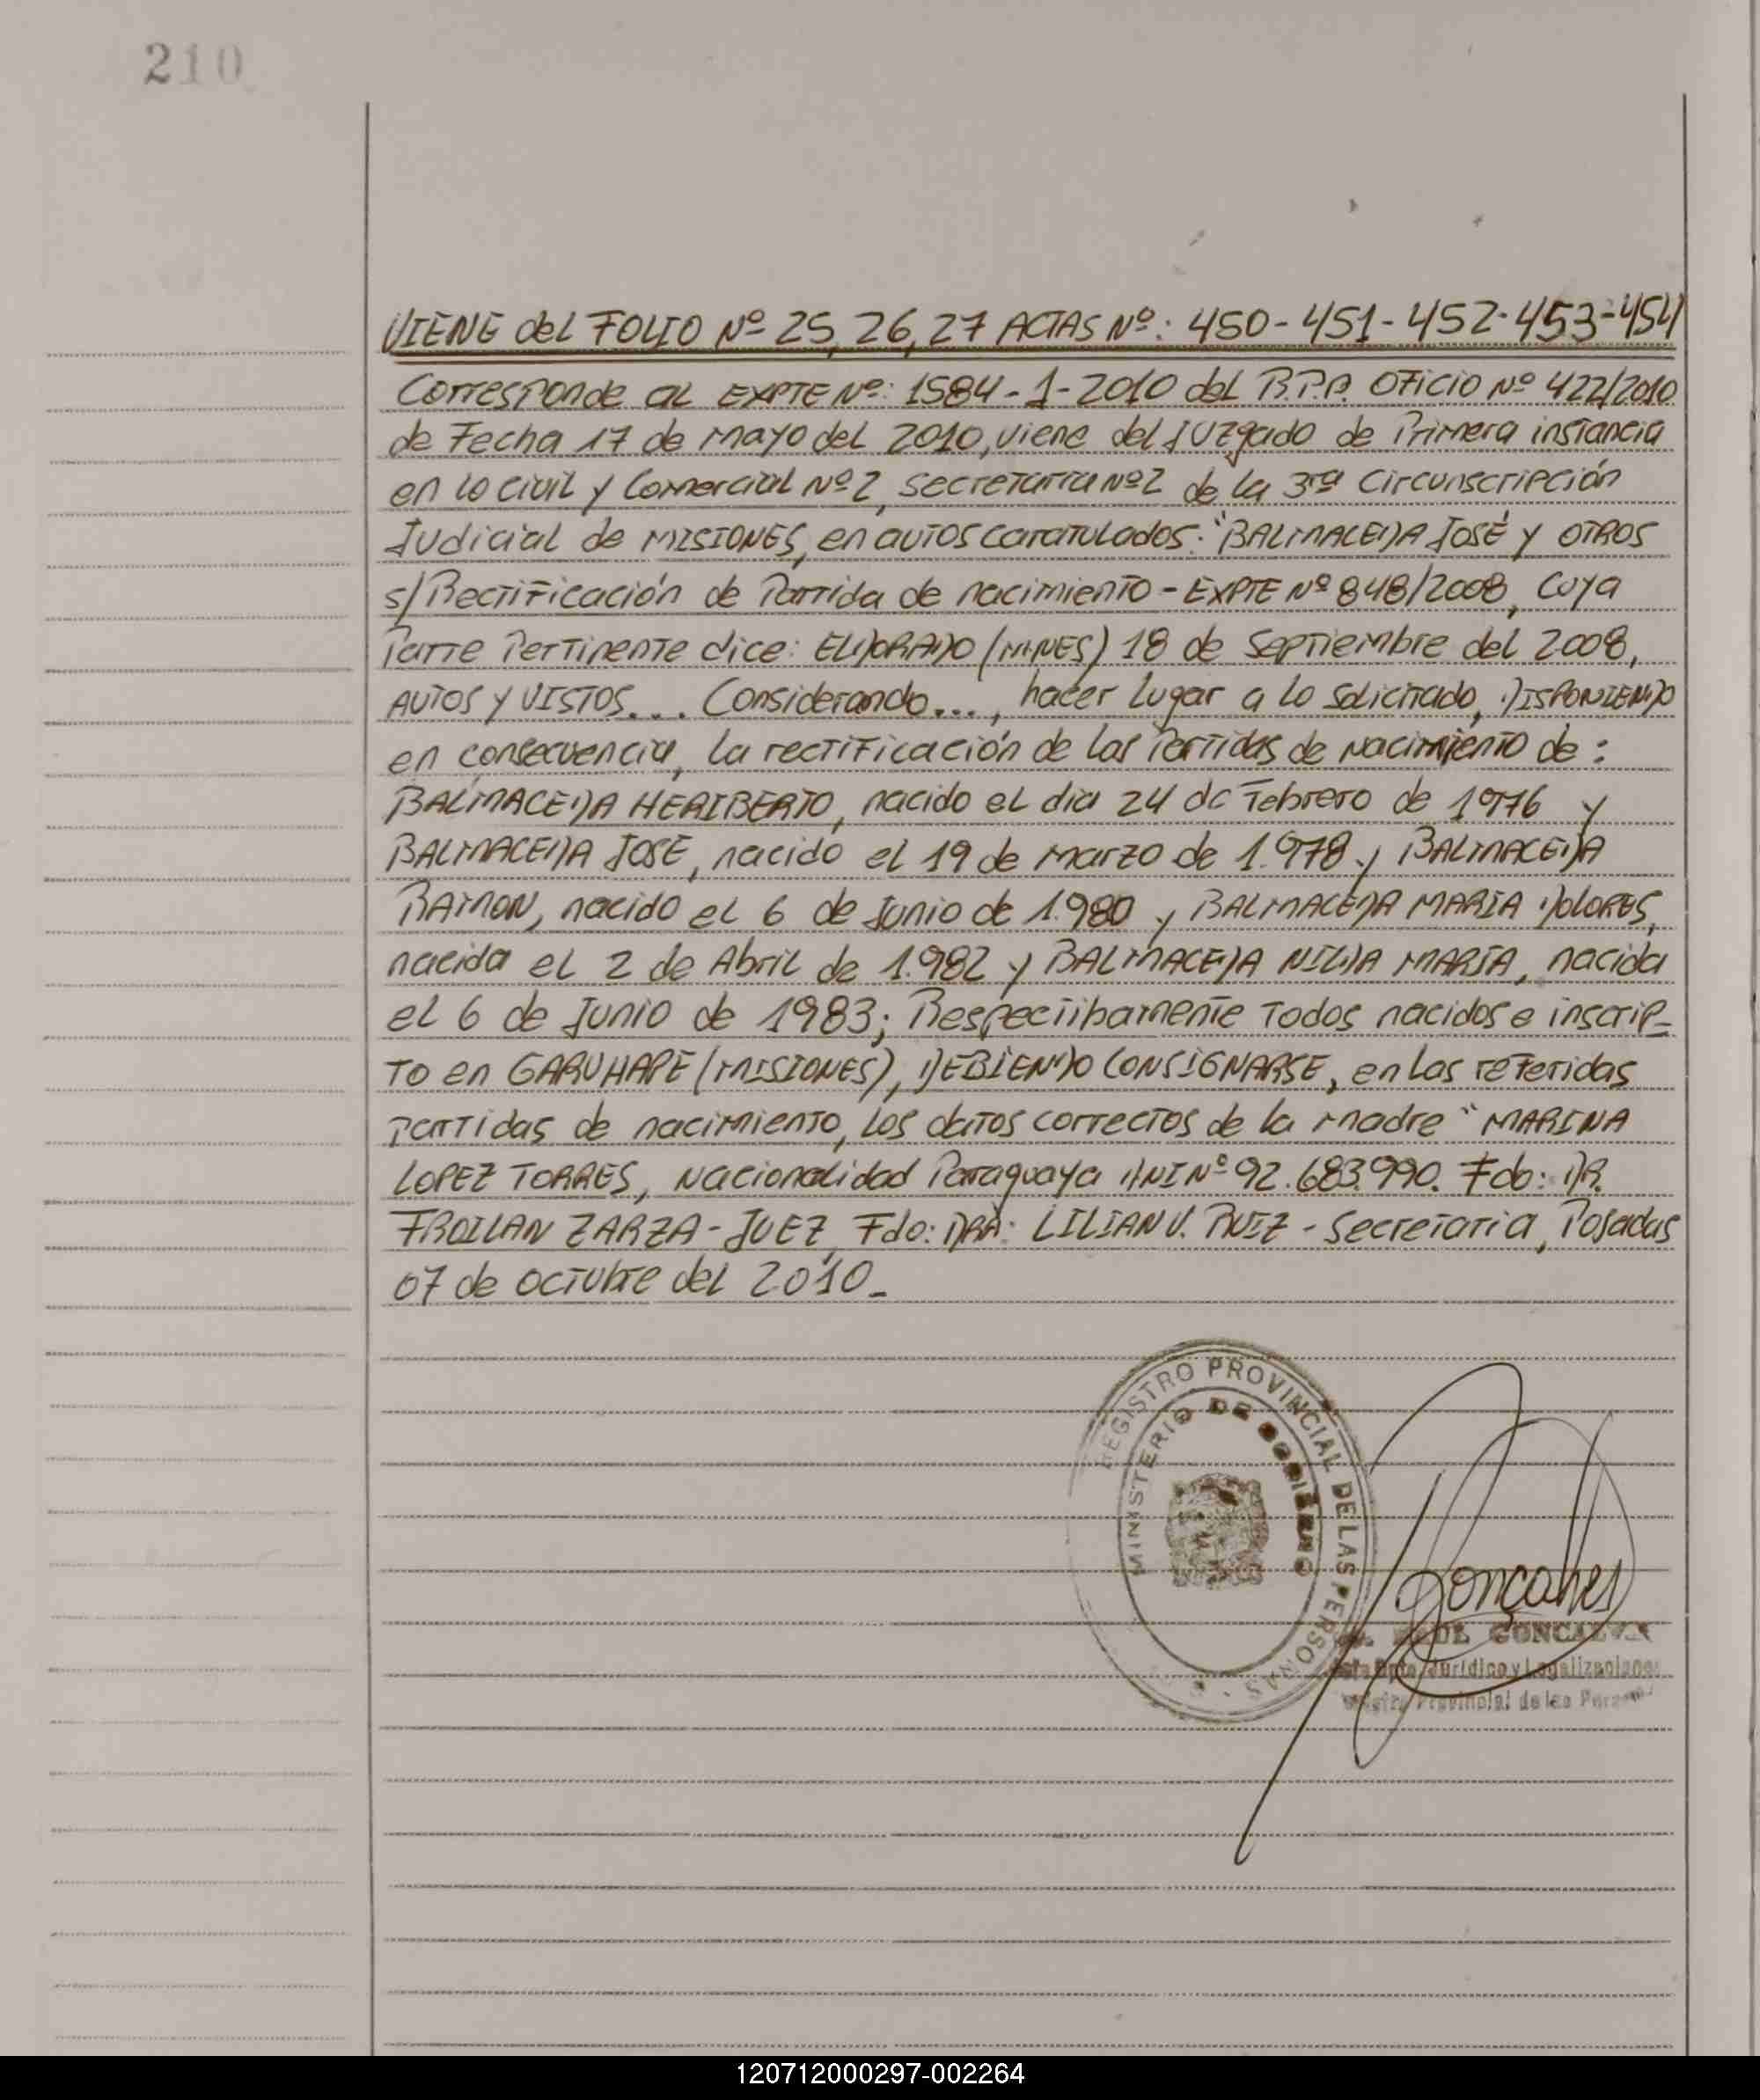 210
VIENE del FOLIO Nº 25, 26, 27 ACTAS Nº: 450-451-452-453-454
Corresponde al EXPTE Nº: 1584-1-2010 del R.P.P. OFICIO Nº 422/2010
de Fecha 17 de mayo del 2010, viene del Juzgado de Primera instancia
en lo civil y Comercial Nº2, secretarra Nº2 de la 3ra Circunscripción
Judicial de MISIONES, en autos caratulados: "BALMACEDA JOSÉ y OTROS
s/Rectificación de Partida de nacimiento - EXPTE Nº 848/2008, cuya
Parte Pertinente dice: ELDORADO (MNES) 18 de Septiembre del 2008,
AUTOS y VISTOS... Considerando..., hacer lugar a lo solicitado, DISPONIENDO
en consecuencia, la rectificación de las Partidas de nacimiento de:
BALMACEDA HERIBERTO, nacido el dia 24 de Febrero de 1976 y
BALMACEDA JOSE, nacido el 19 de marzo de 1.978 y BALMACEDA
RAMON, nacido el 6 de Junio de 1.980 y BALMACEDA MARIA DOLORES,
nacida el 2 de Abril de 1.982 y BALMACEDA NILDA MARIA, nacida
el 6 de Junio de 1983; Respectibamente Todos nacidos e inscrip-
to en GARUHAPE (MISIONES), DEBIENDO CONSIGNARSE, en las referidas
partidas de nacimiento, los datos correctos de la madre "MARINA
LOPEZ TORRES, Nacionalidad Paraguaya DNI Nº 92.683.990. Fdo: DR.
FROILAN ZARZA - JUEZ, Fdo: DRA: LILIAN V. RUIZ - Secretaria, Posadas
07 de octubre del 2010.-
REGISTRO PROVINCIAL DE LAS PERSONAS
MINISTERIO DE GOBIERNO
Gonçalves
GONCALVES
Dpto. Jurídico y Legalizaciones
Provincial de las Personas
120712000297-002264